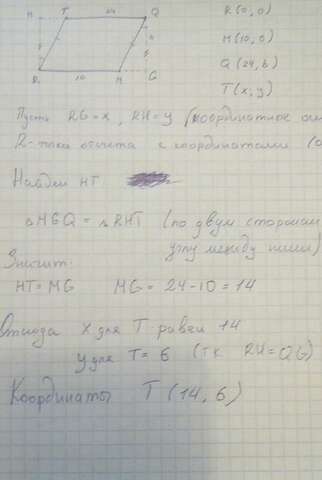 H T 24 Q
R 10 M G
R(0,0)
M(10,0)
Q(24,6)
T(x;y)
Пусть RG = x, RH = y (координатное
R - точка отсчета с координатами (0
Найдем HT.
△MGQ = △RHT (по двум сторонам
углу между ними)
Значит:
HT = MG MG = 24-10 = 14
Отсюда x для T равен 14
y для T = 6 (тк RH = QG)
Координаты T(14,6)